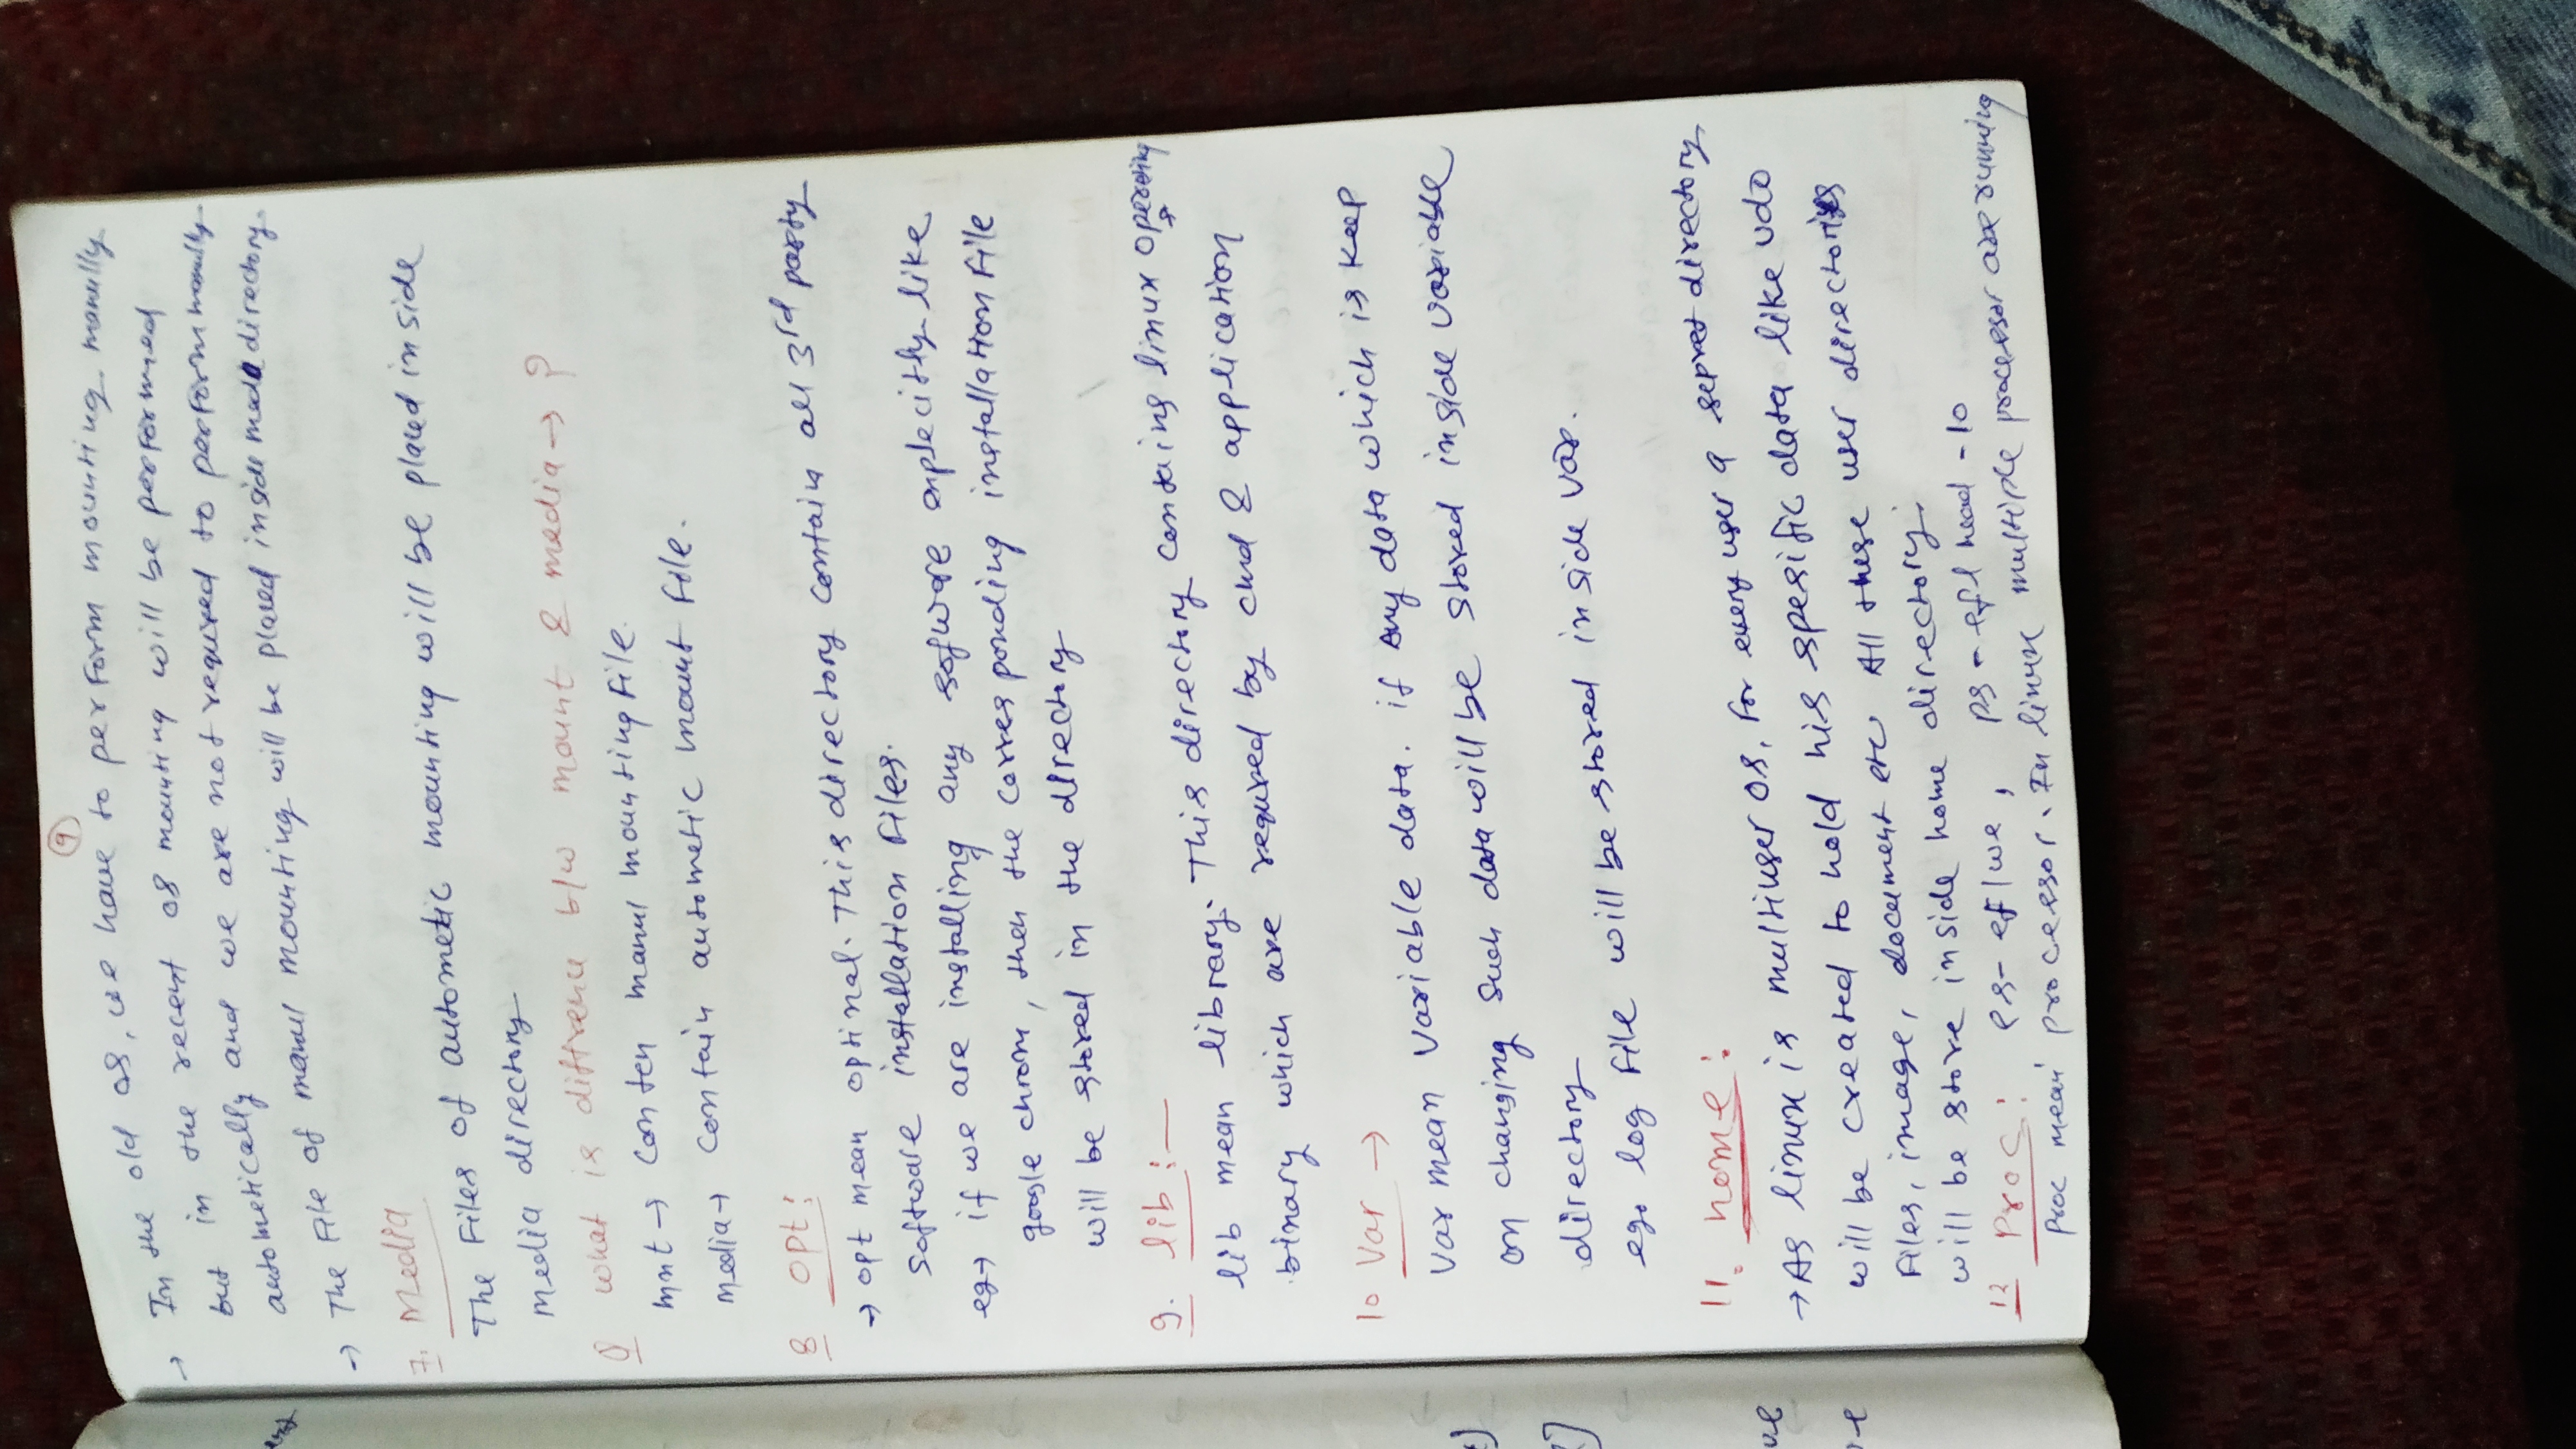 9
→ In the old OS, we have to perform mounting manully
but in the recent OS mounting will be performed
autometically and we are not requred to perform manully
→ The File of manul mounting will be placed inside media directory.
7. Media
The Files of autometic mounting will be placed inside
media directory
Q what is diffrence b/w mount & media → ?
mnt → Conten manul mounting File.
media → Contain autometic mount File.
8 opt:
→ opt mean optinal. This directory contain all 3rd party
software installation Files.
eg → if we are installing any sofware explecitly like
google chrom, then the corresponding installation File
will be stored in the directory
9. lib :—
lib mean library. This directory containing linux operating
binary which are requred by cmd & application
10 Var →
Var mean Variable data. if Any data which is keep
on changing Such data will be stored inside variable
directory
eg. log File will be stored inside var.
11. home :
→ As linux is multiuser OS, For every user a sepret directory
will be created to hold his spesific data like vdo
Files, image, document etc All these user directories
will be store inside home directory.
12 Proc : es-ef/we , ps-ef| head -10
Proc mean processor. In linux multiple processor are running